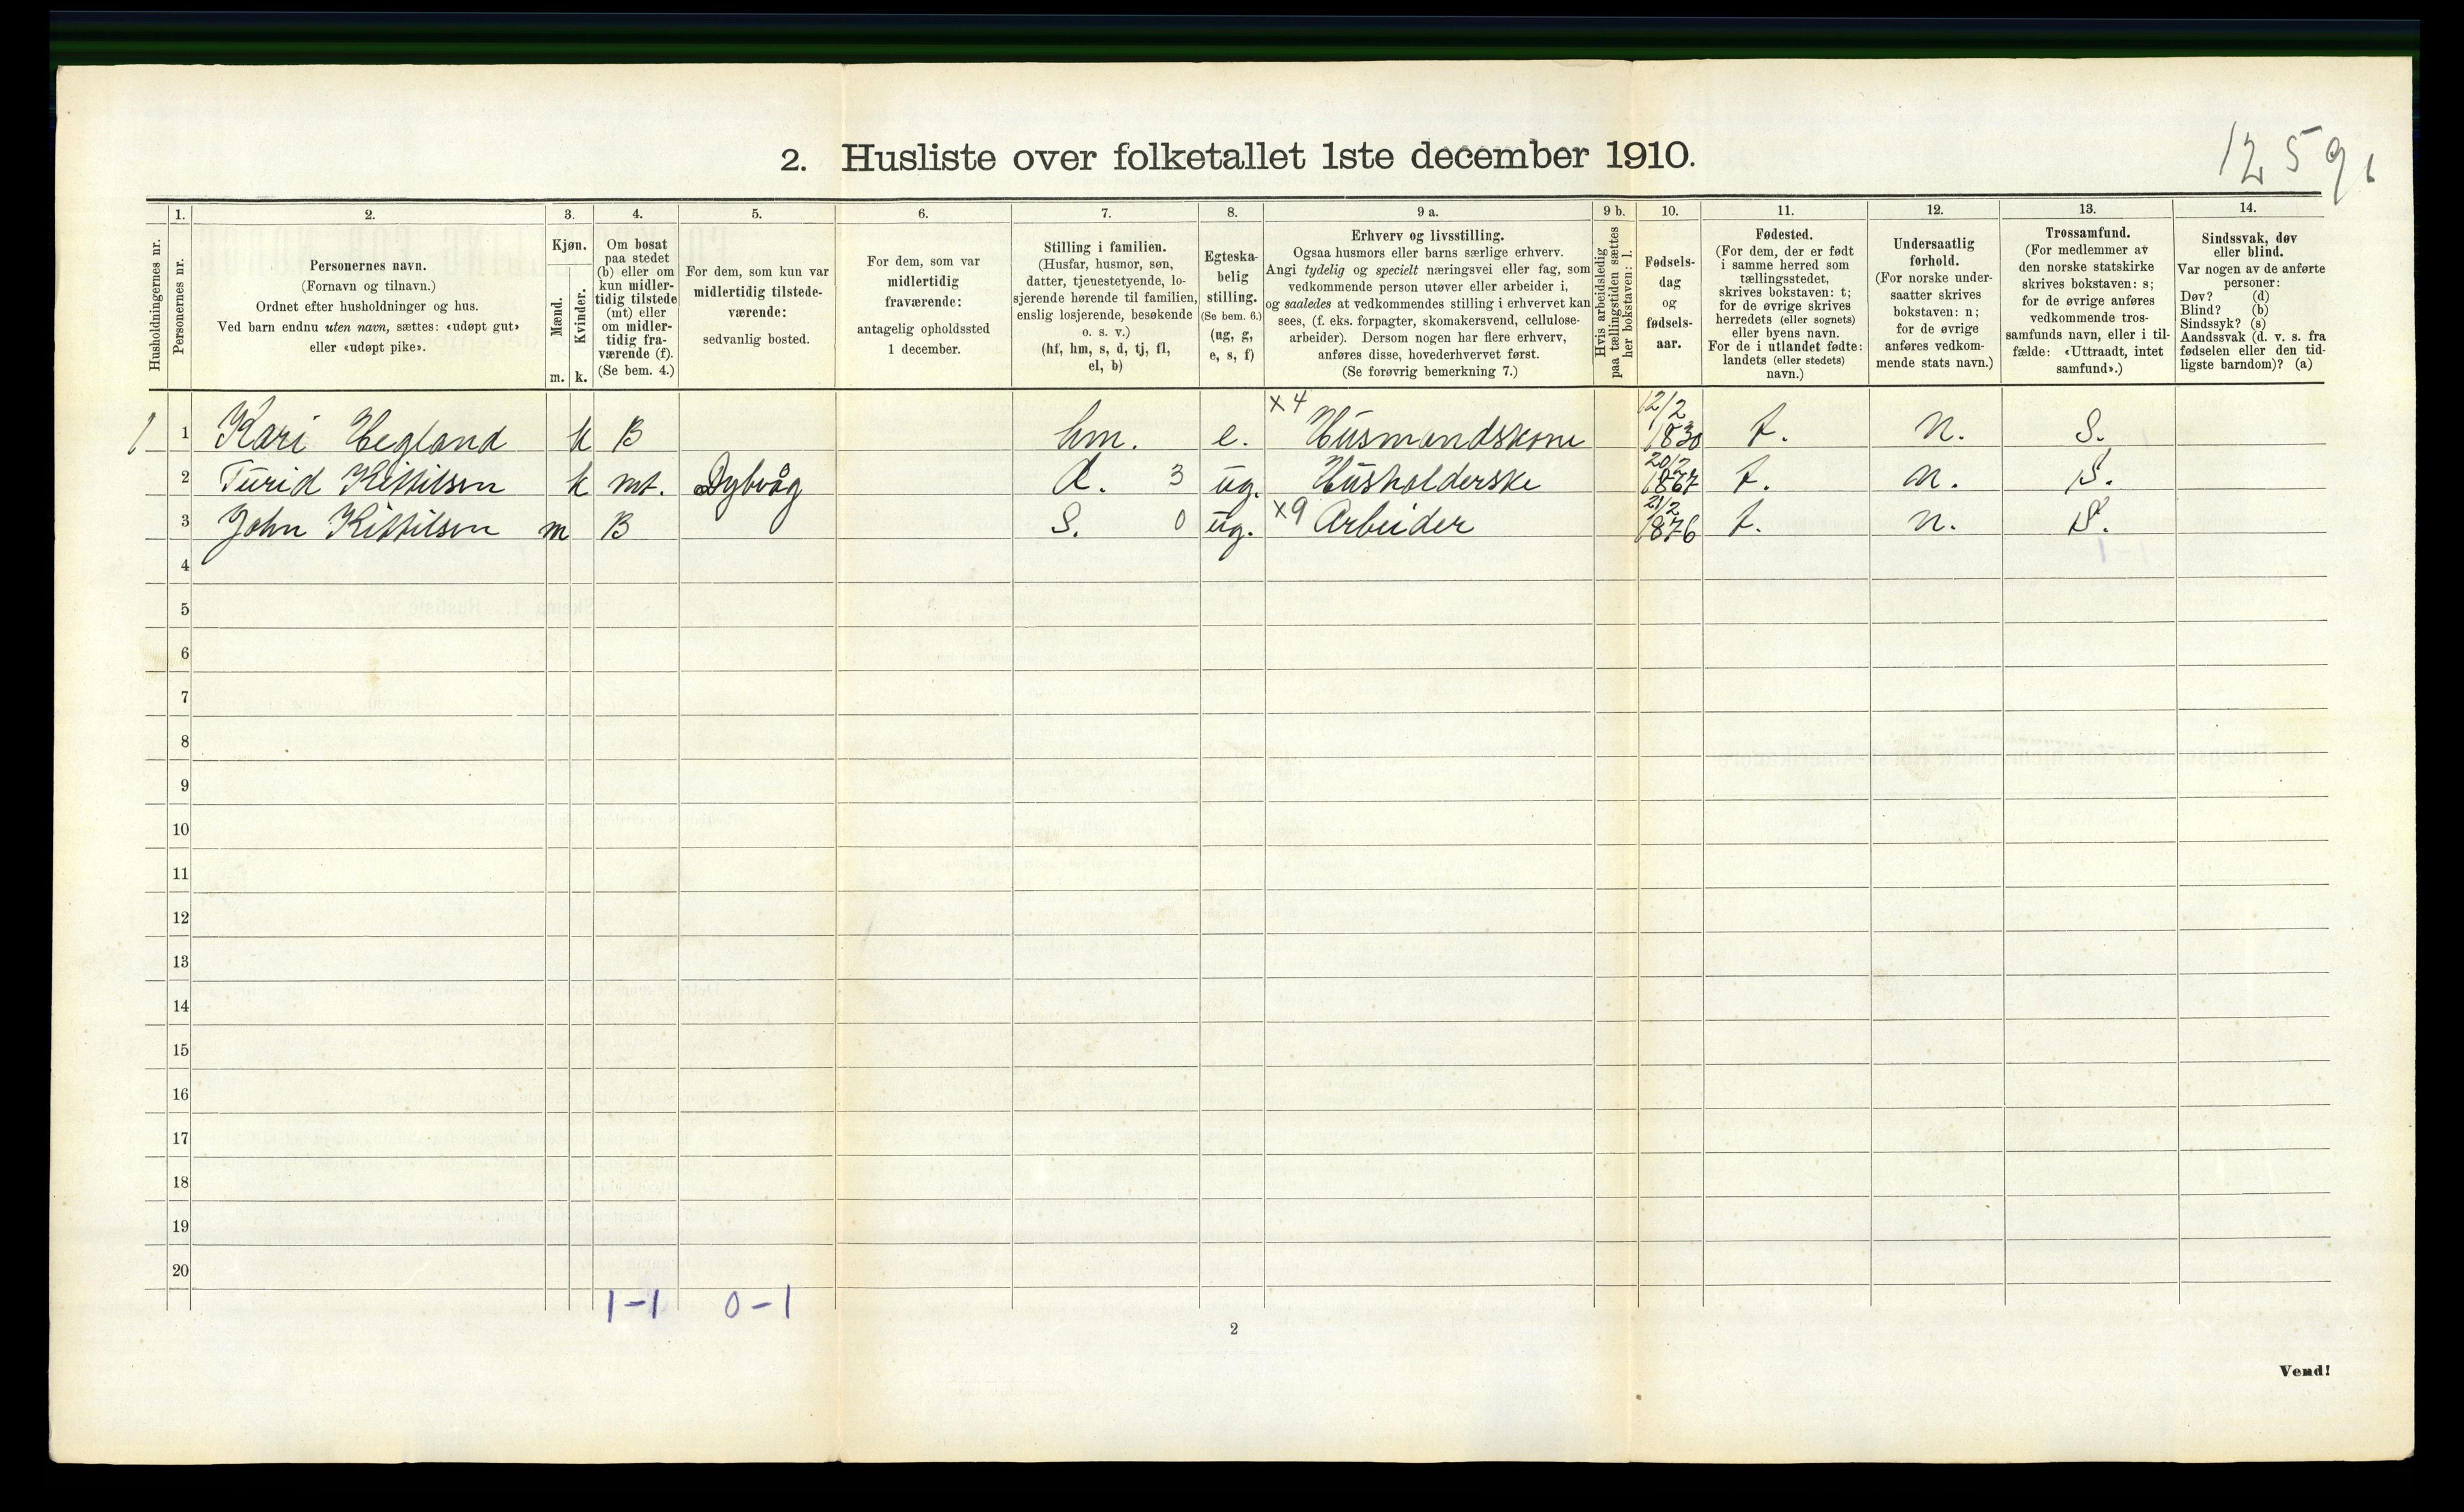 12 59
2. Husliste over folketallet 1ste december 1910.
Husholdningernes nr.
1. Personernes nr.
2. Personernes navn. (Fornavn og tilnavn.) Ordnet efter husholdninger og hus. Ved barn endnu uten navn, sættes: «udøpt gut» eller «udøpt pike».
3. Kjøn. Mænd. Kvinder. m. k.
4. Om bosat paa stedet (b) eller om kun midlertidig tilstede (mt) eller om midlertidig fraværende (f). (Se bem. 4.)
5. For dem, som kun var midlertidig tilstedeværende: sedvanlig bosted.
6. For dem, som var midlertidig fraværende: antagelig opholdssted 1 december.
7. Stilling i familien. (Husfar, husmor, søn, datter, tjenestetyende, losjerende hørende til familien, enslig losjerende, besøkende o. s. v.) (hf, hm, s, d, tj, fl, el, b)
8. Egteskabelig stilling. (Se bem. 6.) (ug, g, e, s, f)
9 a. Erhverv og livsstilling. Ogsaa husmors eller barns særlige erhverv. Angi tydelig og specielt næringsvei eller fag, som vedkommende person utøver eller arbeider i, og saaledes at vedkommendes stilling i erhvervet kan sees, (f. eks. forpagter, skomakersvend, cellulosearbeider). Dersom nogen har flere erhverv, anføres disse, hovederhvervet først. (Se forøvrig bemerkning 7.)
9 b. Hvis arbeidsledig paa tællingstiden sættes her bokstaven: l.
10. Fødselsdag og fødselsaar.
11. Fødested. (For dem, der er født i samme herred som tællingsstedet, skrives bokstaven: t; for de øvrige skrives herredets (eller sognets) eller byens navn. For de i utlandet fødte: landets (eller stedets) navn.)
12. Undersaatlig forhold. (For norske undersaatter skrives bokstaven: n; for de øvrige anføres vedkommende stats navn.)
13. Trossamfund. (For medlemmer av den norske statskirke skrives bokstaven: s; for de øvrige anføres vedkommende trossamfunds navn, eller i tilfælde: «Uttraadt, intet samfund».)
14. Sindssvak, døv eller blind. Var nogen av de anførte personer: Døv? (d) Blind? (b) Sindssyk? (s) Aandssvak (d. v. s. fra fødselen eller den tidligste barndom)? (a)
1 1 Kari Hegland k B hm. e. x4 Husmandskone 12/2 1830 t. n. S.
2 Turid Kittilsen k mt. Dybvåg d. 3 ug. Husholderske 20/2 1867 t. n. S.
3 John Kittilsen m B S. 0 ug. x9 Arbeider 21/2 1876 t. n. S.
4
5
6
7
8
9
10
11
12
13
14
15
16
17
18
19
20
1-1 0-1
2
Vend!